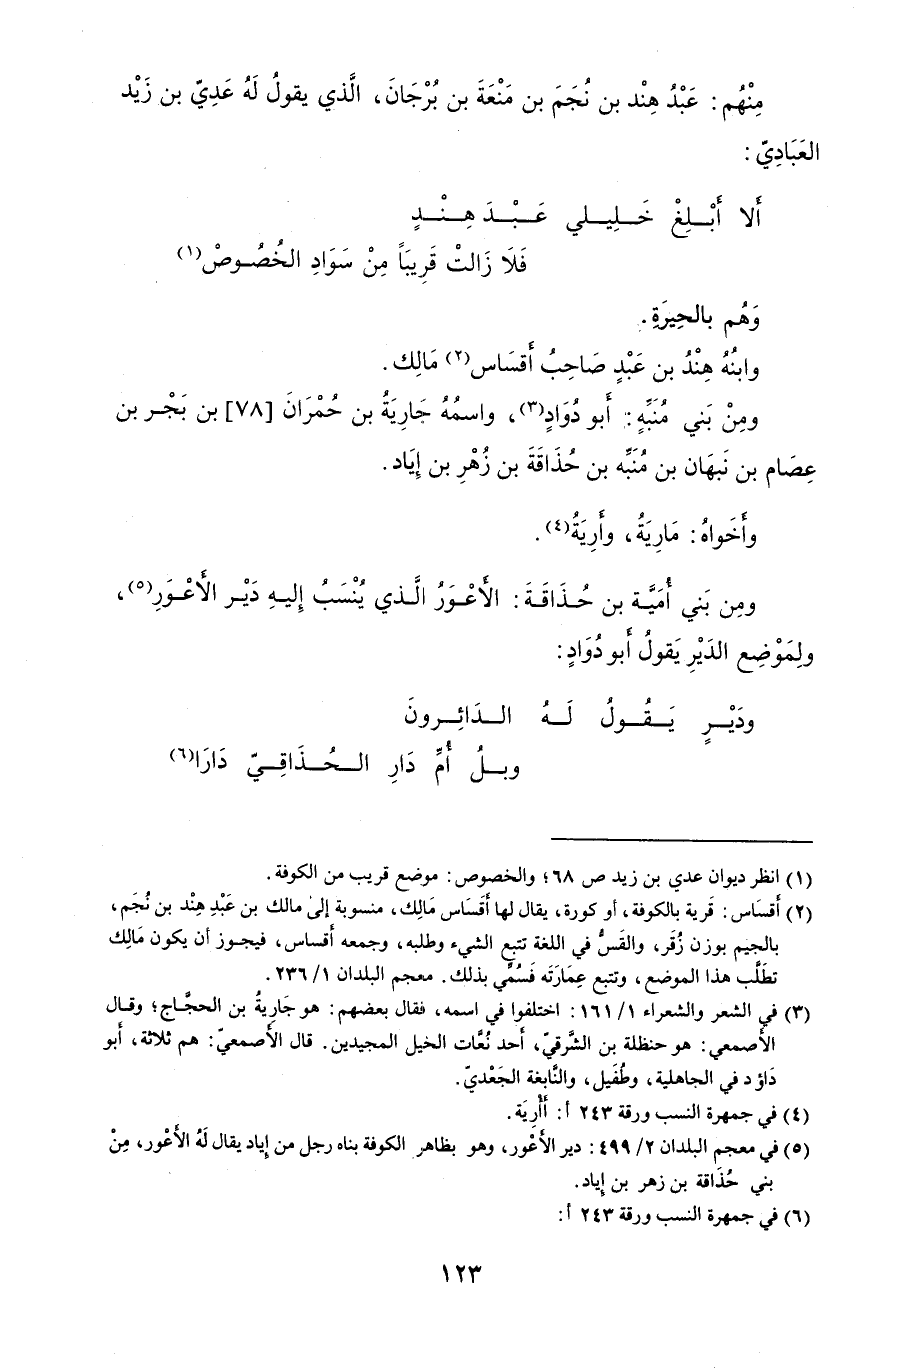 مِنْهُم : عَبْدُ هِنْد بن نُجَمَ بن مَنْعَةَ بن بُرْجَانَ، الَّذي يقولُ لَهُ عَدِيّ بن زَيْد
العَبَادِيّ :
أَلا أَبْلِغْ خَلِيلي عَبْدَ هِنْدٍ
فَلَا زَالتْ قَرِيبَاً مِنْ سَوَادِ الخُصُوصْ(١)
وَهُم بالحِيرَةِ.
وابنُهُ هِنْدُ بن عَبْدٍ صَاحِبُ أَقسَاس(٢) مَالِك.
ومِنْ بَني مُنَبِّهٍ: أَبو دُوَادٍ(٣)، واسمُهُ جَارِيَةُ بن حُمْرَانَ [٧٨] بن بَجْر بن
عِصَام بن نَبهَان بن مُنَبِّه بن حُذَاقَةَ بن زُهْرِ بن إيَاد.
وأَخَواهُ: مَارِيَةُ، وأَرِيَةُ(٤).
ومِن بَني أُمَيَّة بن حُذَاقَةَ: الأَعْوَرُ الَّذي يُنْسَبُ إليهِ دَيْر الأَعْوَرِ(٥)،
ولِمَوْضِعِ الدَيْرِ يَقولُ أَبو دُوَادٍ:
ودَيْرٍ يَقُولُ لَهُ الدَائِرونَ
ويلُ أُمِّ دَارِ الحُذَاقِيّ دَارَا(٦)
(١) انظر ديوان عدي بن زيد ص ٦٨؛ والخصوص: موضع قريب من الكوفة.
(٢) أَقسَاس: قَرية بالكوفة، أو كورة، يقال لها أَقسَاس مَالِك، منسوبة إلىٰ مالك بن عَبْدِ هِنْد بن نُجَم،
بالجيم بوزن زُفَر، والقَسُّ في اللغة تتبع الشيء وطلبه، وجمعه أقساس، فيجوز أن يكون مَالِك
تطَلَّب هذا الموضع، وتتبع عِمَارَته فَسُمِّي بذلك. معجم البلدان ٢٣٦/١.
(٣) في الشعر والشعراء ١٦١/١: اختلفوا في اسمه، فقال بعضهم: هو جَارِيةُ بن الحجَّاج؛ وقال
الأصمعي: هو حنظلة بن الشَّرقيّ، أحد نُعَّات الخيل المجيدين. قال الأَصمعيّ: هم ثلاثة، أبو
دَاوُد في الجاهلية، وطُفَيل، والنَّابغة الجَعْديّ.
(٤) في جمهرة النسب ورقة ٢٤٣ أ: أَأْرِيَة.
(٥) في معجم البلدان ٤٩٩/٢: دير الأَعْور، وهو بظاهر الكوفة بناه رجل من إياد يقال لَهُ الأَعْور، مِنْ
بني حُذَاقة بن زهر بن إياد.
(٦) في جمهرة النسب ورقة ٢٤٣ أ:
١٢٣